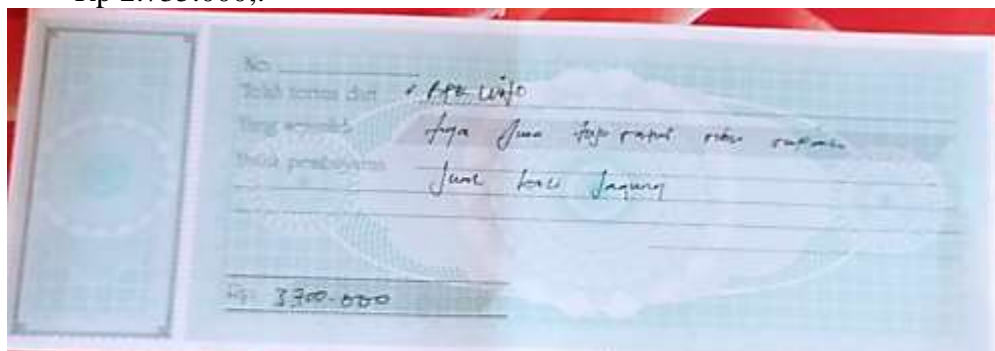 Rp 2.735.000,.
No.
Telah terima dari : BPK Winfo
Yang sejumlah tiga Juta tujuh ratus ribu rupiah
Untuk pembayaran Jual beli Jagung
Rp. 3700.000